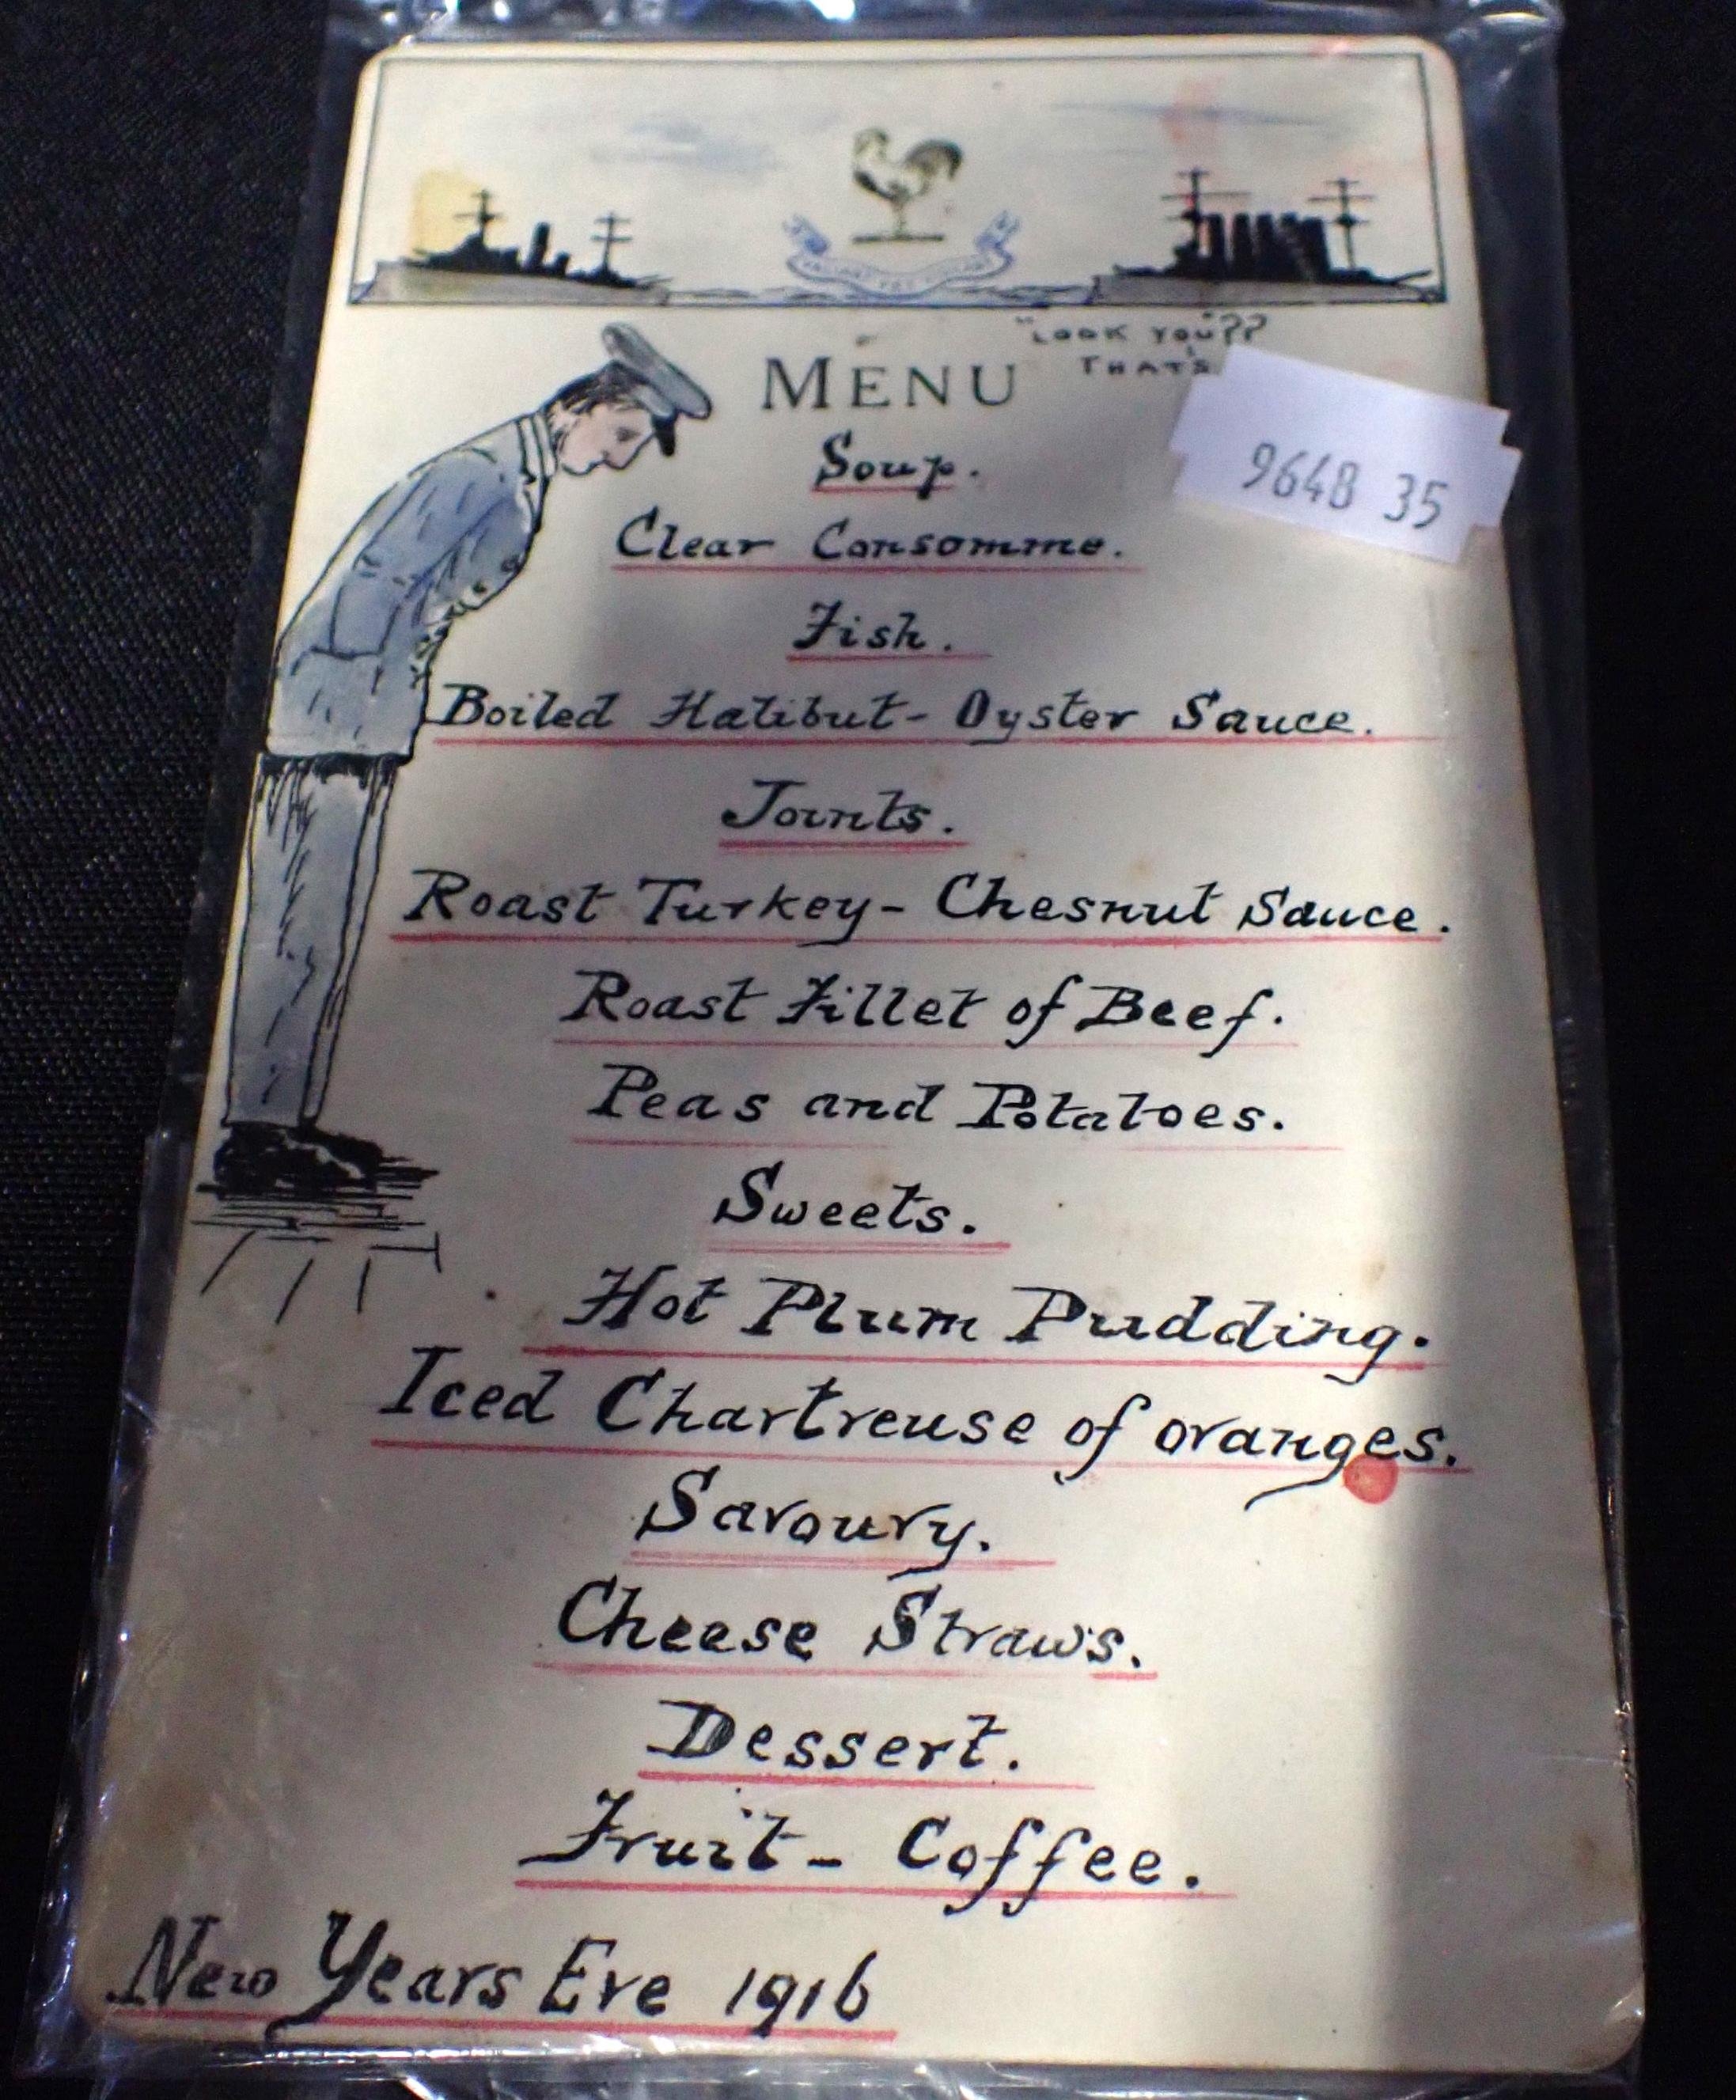 "LOOK YOU"??
THAT'S
MENU
9648 35
Soup.
Clear Consomme.
Fish.
Boiled Halibut - Oyster Sauce.
Joints.
Roast Turkey - Chesnut Sauce.
Roast Fillet of Beef.
Peas and Potatoes.
Sweets.
Hot Plum Pudding.
Iced Chartreuse of oranges.
Savoury.
Cheese Straws.
Dessert.
Fruit - Coffee.
New Years Eve 1916